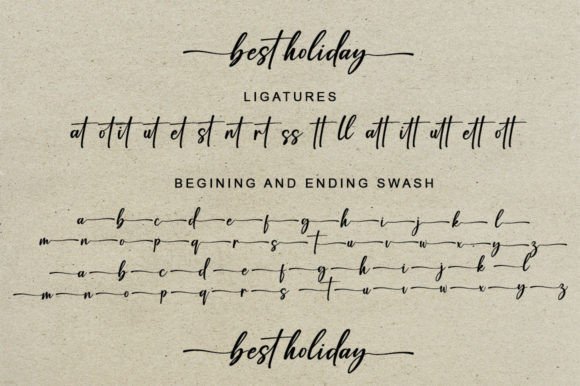 best holiday
LIGATURES
at ot it ut et st nt rt ss tt ll att itt utt ett ott
BEGINING AND ENDING SWASH
a b c d e f g h i j k l
m n o p q r s t u v w x y z
a b c d e f g h i j k l
m n o p q r s t u v w x y z
best holiday